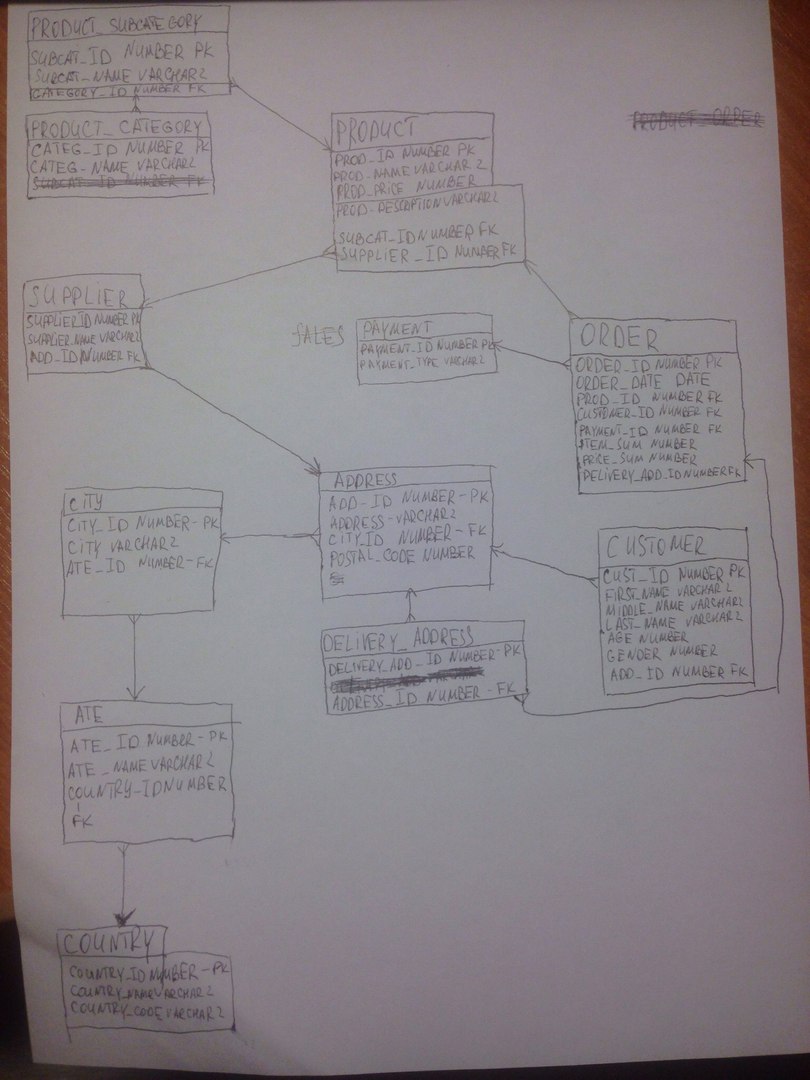 PRODUCT_SUBCATEGORY
SUBCAT_ID NUMBER PK
SUBCAT_NAME VARCHAR2
CATEGORY_ID NUMBER FK
PRODUCT_CATEGORY
CATEG_ID NUMBER PK
CATEG-NAME VARCHAR2
SUBCAT_ID NUMBER FK
PRODUCT
PROD_ID NUMBER PK
PROD-NAME VARCHAR 2
PROD_PRICE NUMBER
PROD-DESCRIPTION VARCHAR2
SUBCAT_ID NUMBER FK
SUPPLIER_ID NUMBER FK
PRODUCT_ORDER
SUPPLIER
SUPPLIER ID NUMBER PK
SUPPLIER_NAME VARCHAR2
ADD_ID NUMBER FK
SALES
PAYMENT
PAYMENT_ID NUMBER PK
PAYMENT_TYPE VARCHAR2
ORDER
ORDER_ID NUMBER PK
ORDER_DATE DATE
PROD_ID NUMBER FK
CUSTOMER_ID NUMBER FK
PAYMENT_ID NUMBER FK
ITEM_SUM NUMBER
PRICE_SUM NUMBER
DELIVERY_ADD_ID NUMBER FK
ADDRESS
ADD-ID NUMBER-PK
ADDRESS-VARCHAR2
CITY_ID NUMBER-FK
POSTAL_CODE NUMBER
CITY
CITY_ID NUMBER-PK
CITY VARCHAR2
ATE_ID NUMBER-FK
CUSTOMER
CUST_ID NUMBER PK
FIRST_NAME VARCHAR2
MIDDLE_NAME VARCHAR2
LAST_NAME VARCHAR2
AGE NUMBER
GENDER NUMBER
ADD_ID NUMBER FK
DELIVERY_ADDRESS
DELIVERY_ADD_ID NUMBER-PK
ADDRESS_ID NUMBER-FK
ATE
ATE_ID NUMBER-PK
ATE_NAME VARCHAR2
COUNTRY_ID NUMBER
-
FK
COUNTRY
COUNTRY_ID NUMBER-PK
COUNTRY_NAME VARCHAR2
COUNTRY_CODE VARCHAR2